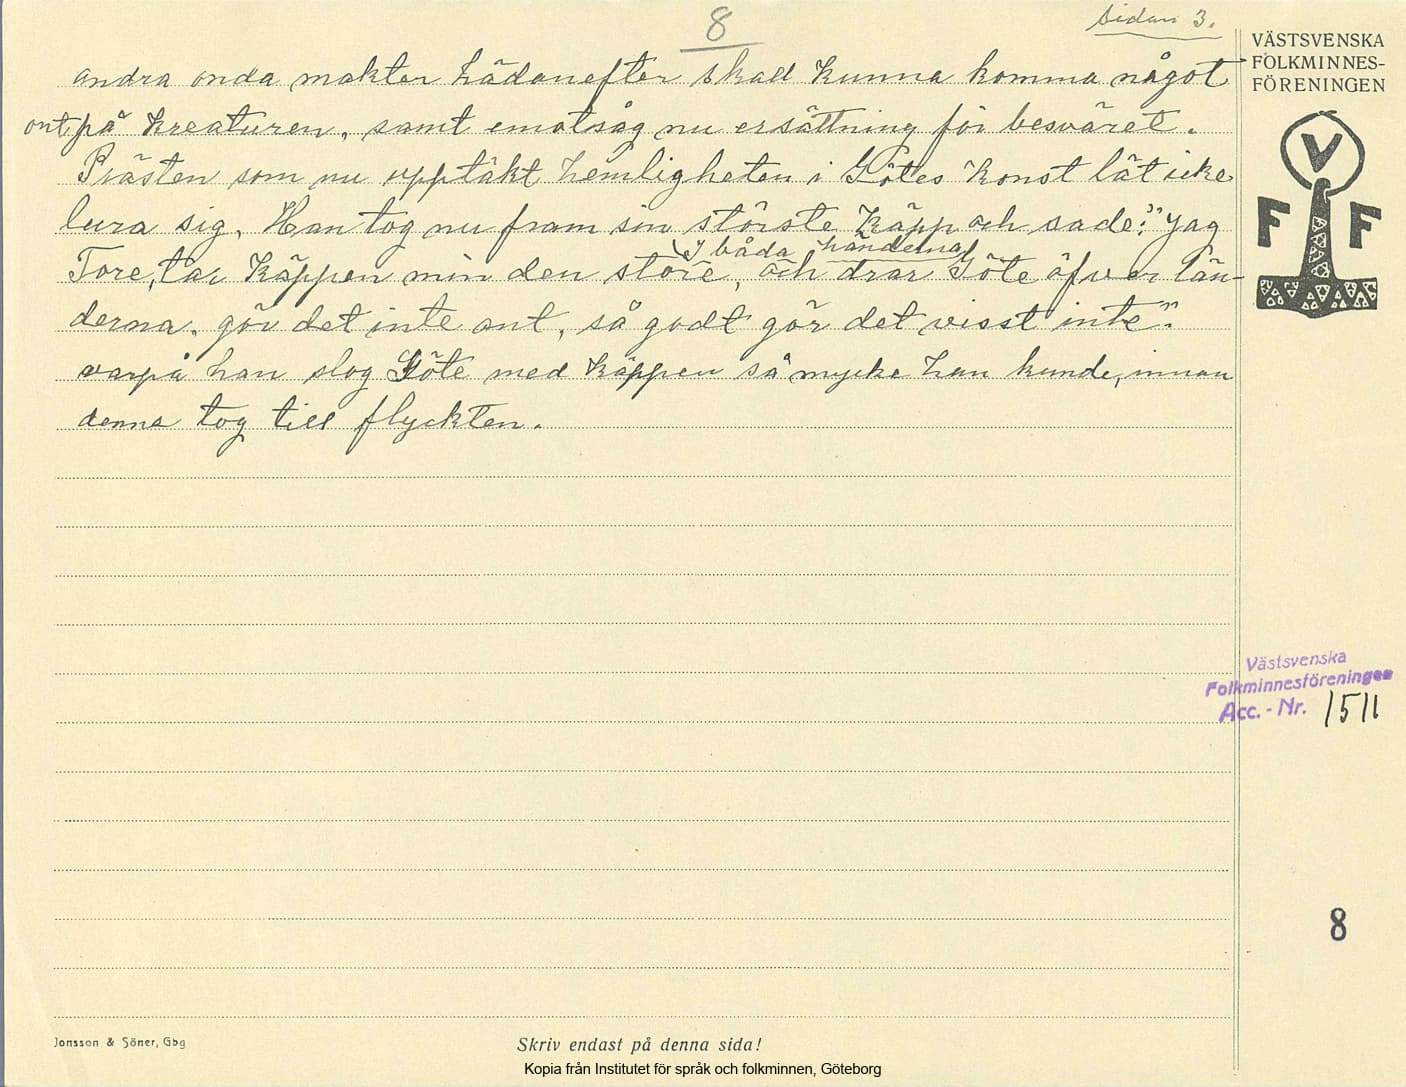 8
Sidan 3.
andra onda makter hädanefter skall kunna komma något
ont på kreaturen, samt emotsåg nu ersättning för besväret.
Prästen som nu upptäkt hemligheten i Götes konst lät icke
lura sig. Han tog nu fram sin störste käpp och sade: "Jag
(I båda händerna)
Tore, tar käppen min den store, och drar Göte öfver län-
derna. gör det inte ont, så godt gör det visst inte".
varpå han slog Göte med käppen så mycke han kunde, innan
denne tog till flyckten.
VÄSTSVENSKA
FOLKMINNES-
FÖRENINGEN
V
F F
Västsvenska
Folkminnesföreningen
Acc. - Nr. 1511
8
Jonsson & Söner, Gbg
Skriv endast på denna sida!
Kopia från Institutet för språk och folkminnen, Göteborg